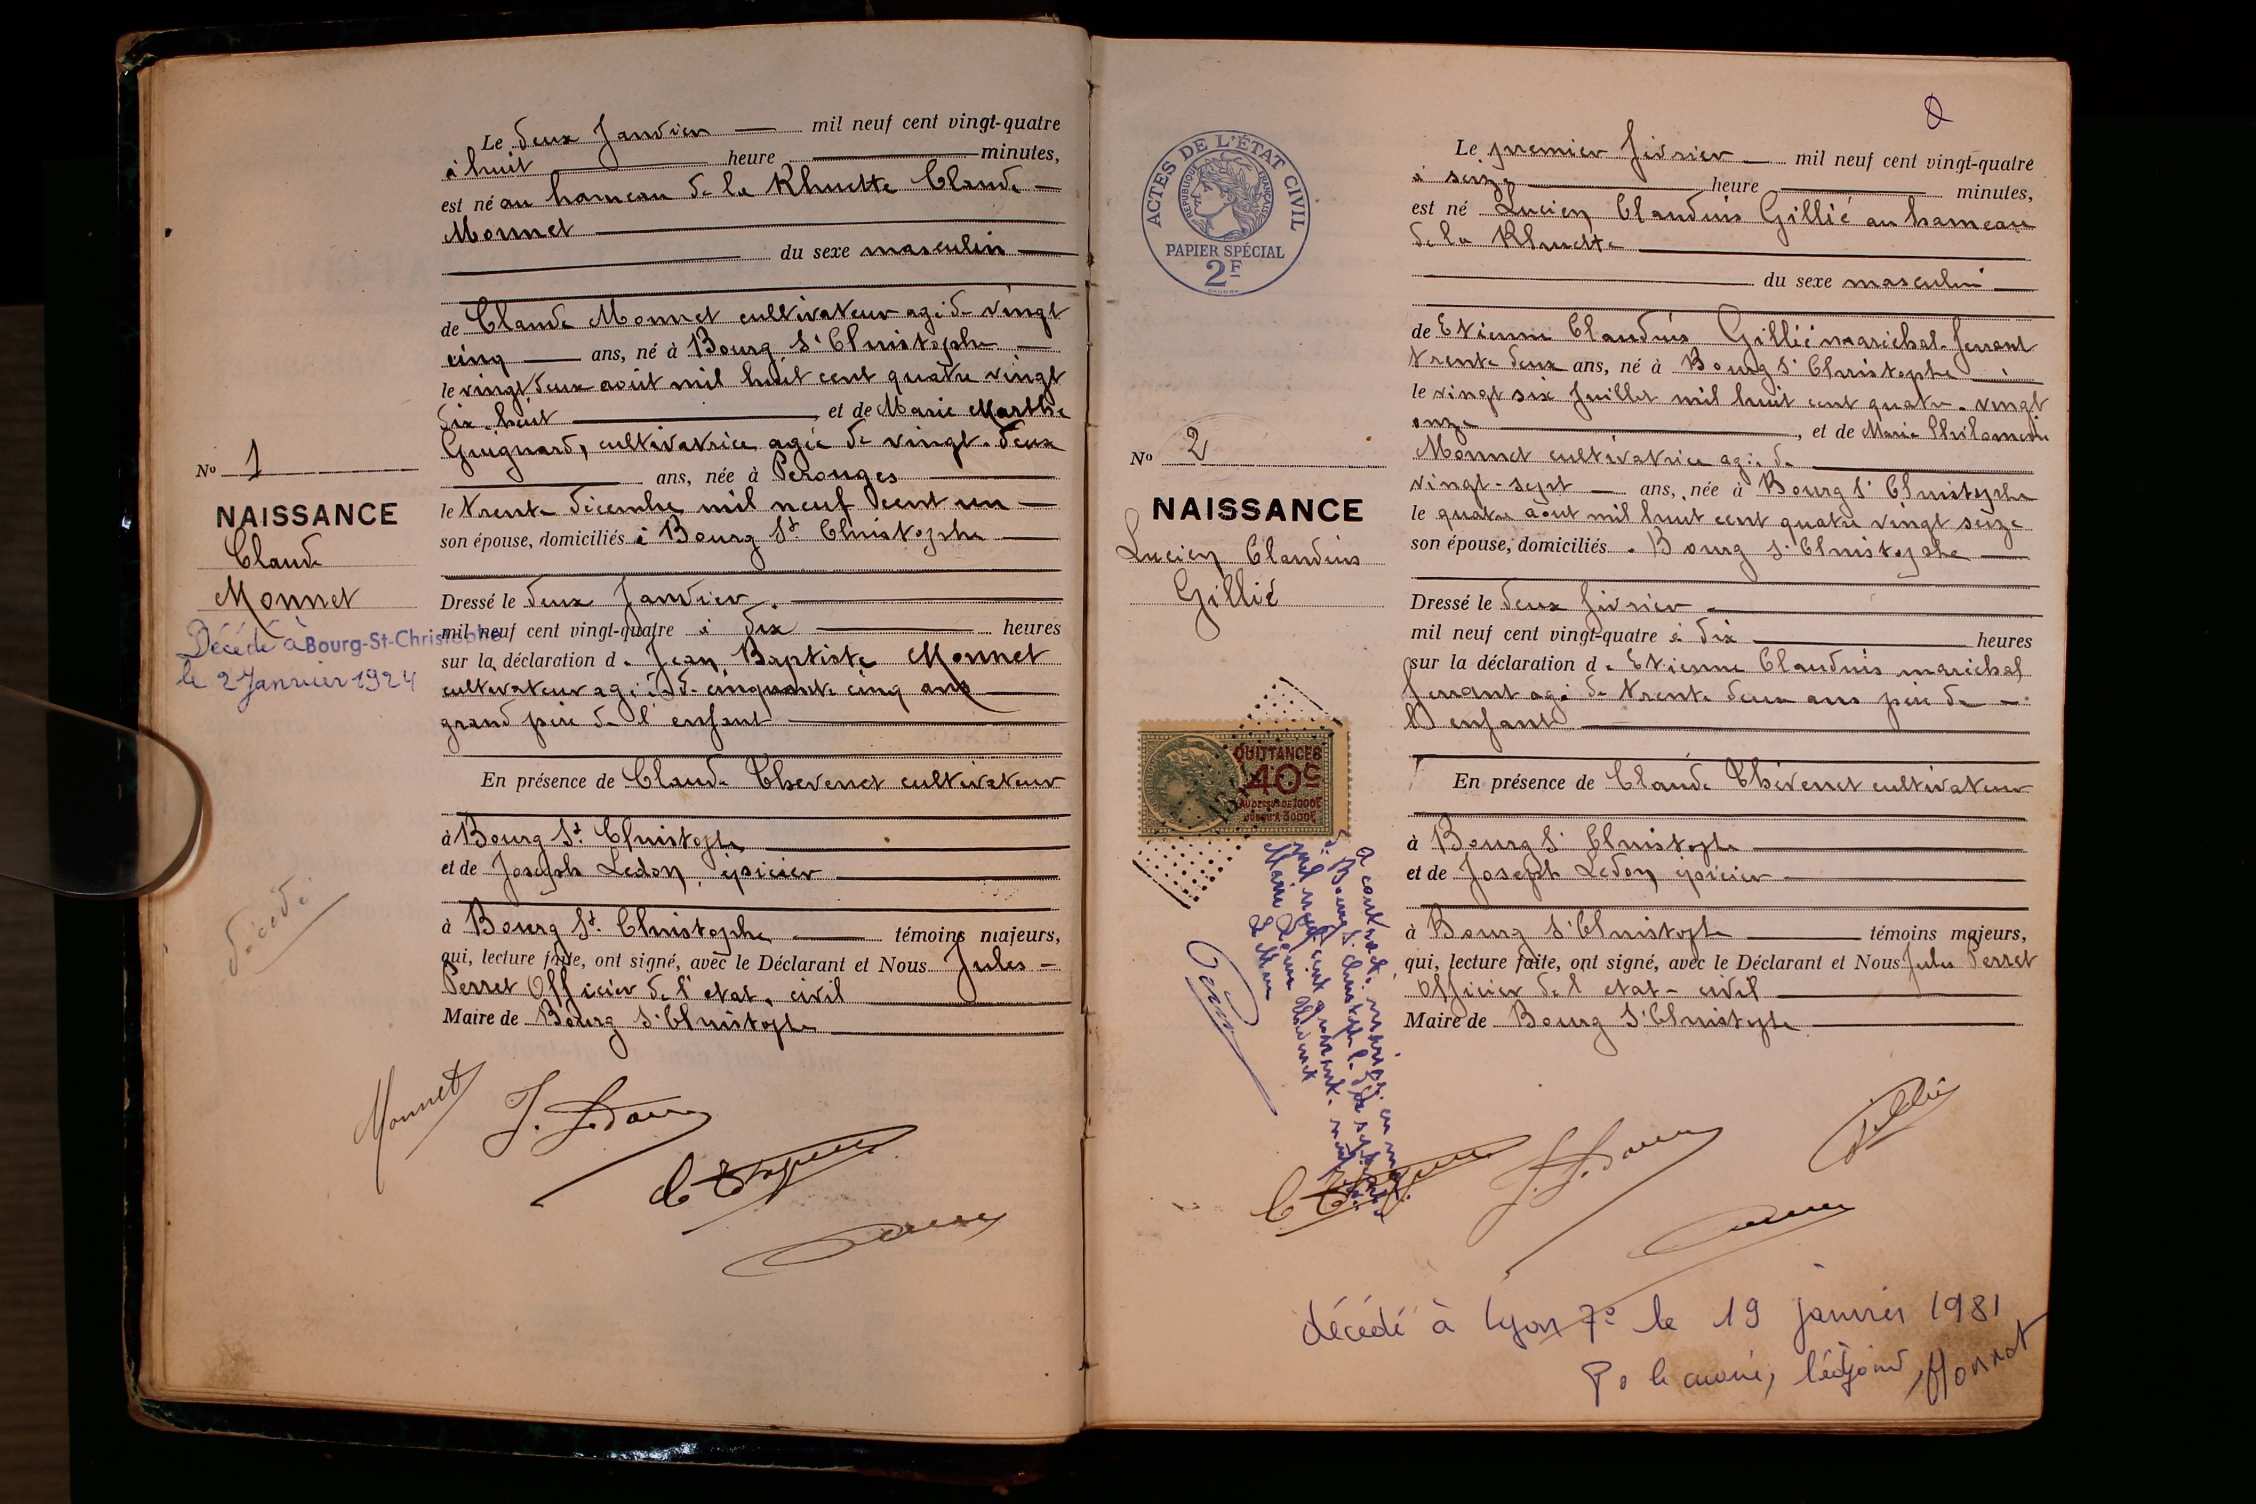 Le deux Janvier mil neuf cent vingt-quatre
à huit heure minutes,
est né au hameau de la Rhuette Claude
Monnet
du sexe masculin
de Claude Monnet cultivateur agé de vingt
cinq ans, né à Bourg St Christophe
le vingt deux août mil huit cent quatre vingt
dix-huit et de Marie Marthe
Guignard, cultivatrice agée de vingt-deux
ans, née à Perouges
le trente décembre mil neuf cent un
son épouse, domiciliés à Bourg St Christophe
Dressé le deux Janvier.
mil neuf cent vingt-quatre à dix heures
sur la déclaration de Jean Baptiste Monnet
cultivateur agé de cinquante cinq ans
grand père de l'enfant
En présence de Claude Thevenet cultivateur
à Bourg St. Christophe
et de Joseph Ledon, épicier
à Bourg St. Christophe témoins majeurs,
qui, lecture faite, ont signé, avec le Déclarant et Nous Jules
Perret Officier de l'etat-civil
Maire de Bourg St Christophe
No 1
NAISSANCE
Claude
Monnet
Décédé à Bourg-St-Christophe
le 2 Janvier 1924
décédé
Monnet
ACTES DE L'ÉTAT CIVIL
RÉPUBLIQUE FRANÇAISE
PAPIER SPÉCIAL
2F
No 2
NAISSANCE
Lucien Claudius
Gillié
QUITTANCES
40c
AU DESSUS DE 1000F
JUSQU'À 3000F
a contracté mariage en mairie
à Bourg St Christophe le
mil neuf cent quarante
Marie
Le Maire
Le premier février mil neuf cent vingt-quatre
à seize heure minutes,
est né Lucien Claudius Gillié au hameau
de la Rhuette
du sexe masculin
de Etienne Claudius Gillié maréchal-ferrant
trente deux ans, né à Bourg St Christophe
le vingt six Juillet mil huit cent quatre-vingt
onze, et de Marie Philomène
Monnet cultivatrice agée de
vingt-sept ans, née à Bourg St Christophe
le quatre août mil huit cent quatre vingt seize
son épouse, domiciliés à Bourg St Christophe
Dressé le deux février
mil neuf cent vingt-quatre à dix heures
sur la déclaration de Etienne Claudius maréchal
ferrant agé de trente deux ans père de
l'enfant
En présence de Claude Thévenet cultivateur
à Bourg St Christophe
et de Joseph Ledon épicier
à Bourg St Christophe témoins majeurs,
qui, lecture faite, ont signé, avec le Déclarant et Nous Jules Perret
Officier de l'etat-civil
Maire de Bourg St Christophe
Gillié
décédé à Lyon 7e le 19 janvier 1981
Po le maire, l'adjoint, Monnet